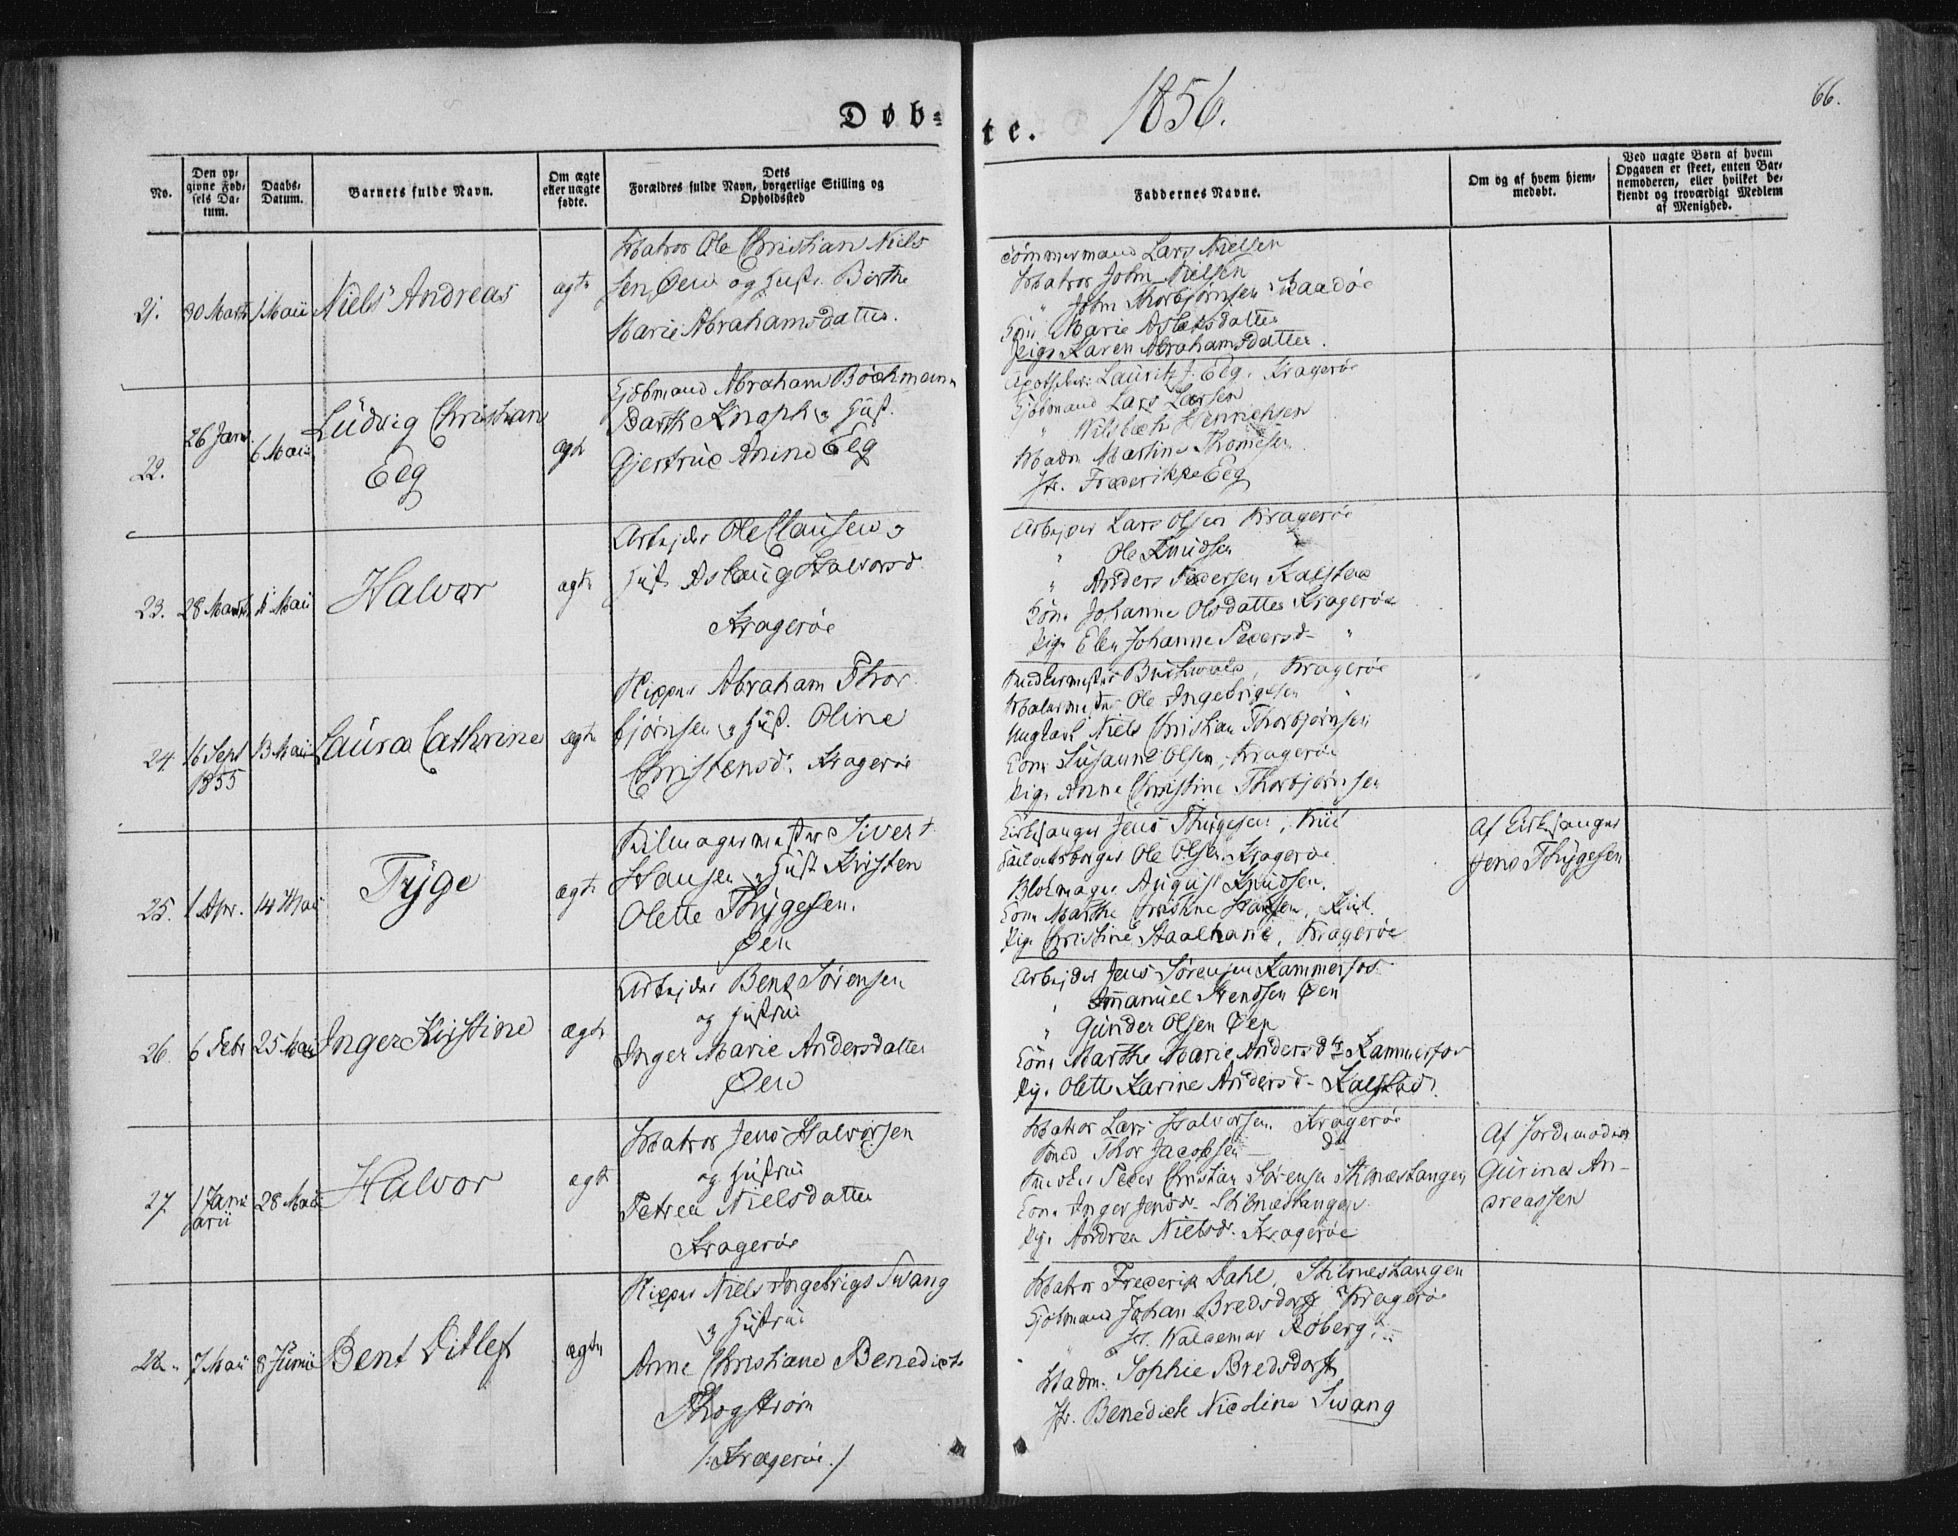 Døb-te. 1856.
66.
No.
Den op-
givne Fød-
sels Da-
tum.
Daabs-
Datum.
Barnets fulde Navn.
Om ægte
eller uægte
fødte.
Dets
Forældres fulde Navn, borgerlige Stilling og
Opholdssted
Faddernes Navne.
Om og af hvem hjem-
medøbt.
Ved uægte Børn af hvem
Opgaven er skeet, enten Bar-
nemoderen, eller hvilket be-
kjendt og troværdigt Medlem
af Menighed.
21. 30 Marts 1 Maii Niels Andreas ægte
Matros Ole Christian Niels
sen Øen og Hust. Birthe
Marie Abrahamsdatter.
Tømmermand Lars Nielsen
Matros John Nielsen
" John Thorbjørnsen Baadøe
Kone Marie Aslaksdatter
Pige Karen Abrahamsdatter.
22. 26 Janr. 6 Maii Ludvig Christian
Eeg
ægte
Kjøbmand Abraham Bøckmann
Barth Knoph og Hust.
Gjertrue Anine Eeg
Apotheker Lauritz J. Eeg. Kragerøe
Kjøbmand Lars Larsen
" Henrichsen
Madm Martine Thomesen
Jfr. Frederikke Eeg
23. 28 Marts Maii Halvor ægte
Arbejder Ole Clausen og
Hust Aslaug Halvorsd.
Kragerøe
Arbejder Lars Olsen Kragerøe
" Ole Knudsen
" Anders Pedersen Kalstad
Kone Johanne Olsdatter Kragerøe
Pige Elen Johanne Pedersd- "
24. 16 Sept
1855
13 Maii Laura Cathrine ægte
Skipper Abraham Thor
bjørnsen og Hust. Oline
Christensd. Kragerøe
Snedkermester Buchwald, Kragerøe
Malermester Ole Ingebrigtsen "
Ungkarl Niels Christian Thorbjørnsen
Kone Susanne Olsen, Kragerøe
Pige Anne Christine Thorbjørnsen
25. 1 Apr. 14 Maii Tyge ægte
Seilmagermester Sivert
Hansen og Hust Kirsten
Olette Thygesen.
Øen
Kirkesanger Jens Thygesen,
Ole Olsen Kragerøe
Blokmager August Knudsen.
Kone Marthe Christine Hansen,
Pige Christine Staalhane, Kragerøe
Af Kirkesanger
Jens Thygesen
26. 6 Febr 25 Maii Inger Kirstine ægte
Arbejder Bent Sørensen
og Hustrue
Inger Marie Andersdatter
Øen
Arbejder Jens Sørensen Kammerfos
" Emanuel Svendsen Øen
" Gunder Olsen Øen
Kone Marthe Marie Andersdtr Kammerfos
Pig. Olette Karine Andersd- Kalstad.
27. 1 Janu
arii
28 Maii Halvor ægte
Matros Jens Halvorsen
og Hustrue
Petrea Nielsdatter
Kragerøe
Matros Lars Halvorsen Kragerøe
Smed Thor Jacobsen - do
Snedker Peder Christian Sørensen Stilnestangen
Kone Inger Jensdr- Stilnestangen
Pig. Andrea Nielsdr. Kragerøe
Af Jordemoder
Gurine An-
dreassen
28. 7 Maii 8 Junii Bent Ditlef ægte
Skipper Niels Ingebrigt Swang
og Hustrue
Anne Christiane Benedicte
Skogstrøm
/: Kragerøe :/
Matros Frederik Dahl, Stilnestangen
Kjøbmand Johan Bredsdorff Kragerøe
" Waldemar Roberg "
Madm. Sophie Bredsdorff
Jfr. Benedicte Nicoline Swang